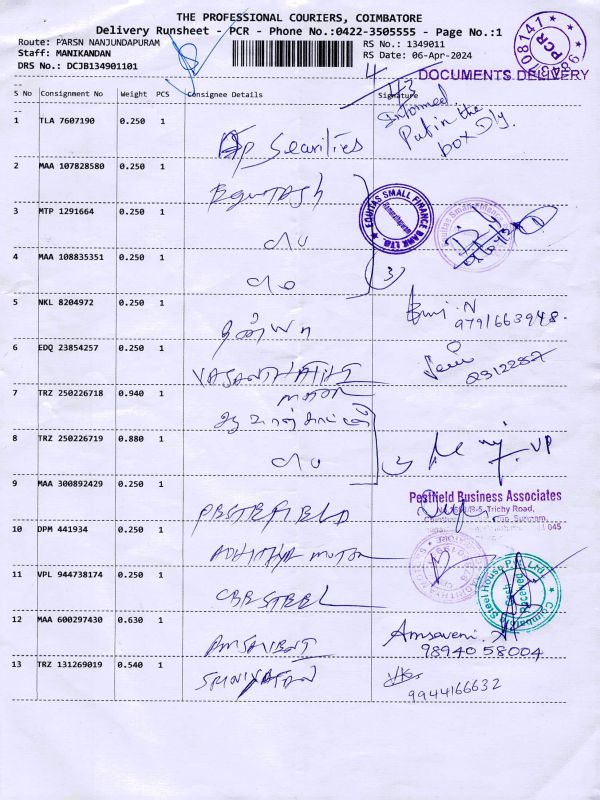 THE PROFESSIONAL COURIERS, COIMBATORE
Delivery Runsheet - PCR - Phone No.:0422-3505555 - Page No.:1
Route: PARSN NANJUNDAPURAM
RS No.: 1349011
Staff: MANIKANDAN
RS Date: 06-Apr-2024
DRS No.: DCJB134901101
PCR
DOCUMENTS DELIVERY
S No Consignment No Weight PCS Consignee Details Signature
Informed
Put in the
box
1 TLA 7607190 0.250 1 Securities
2 MAA 107828580 0.250 1
EQUITAS SMALL FINANCE BANK LTD.
3 MTP 1291664 0.250 1 do
4 MAA 108835351 0.250 1 do
3
5 NKL 8204972 0.250 1
9791663948
6 EDQ 23854257 0.250 1 VASANTHATHI
MOTOR
7 TRZ 250226718 0.940 1
8 TRZ 250226719 0.880 1 do
VP
9 MAA 300892429 0.250 1 PESTFIELD
Pestfield Business Associates
Trichy Road,
10 DPM 441934 0.250 1 ADHITHYA MOTOR
11 VPL 944738174 0.250 1 CBE STEEL
Coimbatore Steel House Pvt Ltd
12 MAA 600297430 0.630 1 AMSAVENI
Amsaveni. A
98940 58004
13 TRZ 131269019 0.540 1 SRINIVASAN
9944166632